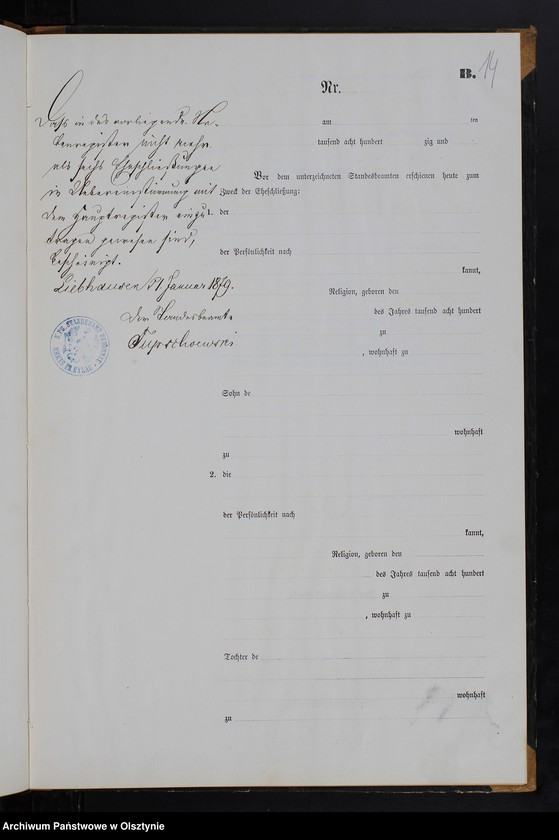 B. 14
Nr.
am ten
tausend acht hundert zig und
Daß in das vorliegende Ne-
benregister nicht mehr
als sechs Eheschließungen
in Uebereinstimmung mit
dem Hauptregister einge-
tragen gewesen sind,
bescheinigt.
Liebhausen 1 Januar 1879.
Der Standesbeamte
Vor dem unterzeichneten Standesbeamten erschienen heute zum
Zweck der Eheschließung:
1. der
der Persönlichkeit nach
kannt,
Religion, geboren den
des Jahres tausend acht hundert
zu
, wohnhaft zu
Sohn de
wohnhaft
zu
2. die
der Persönlichkeit nach
kannt,
Religion, geboren den
des Jahres tausend acht hundert
zu
, wohnhaft zu
Tochter de
wohnhaft
zu
Archiwum Państwowe w Olsztynie